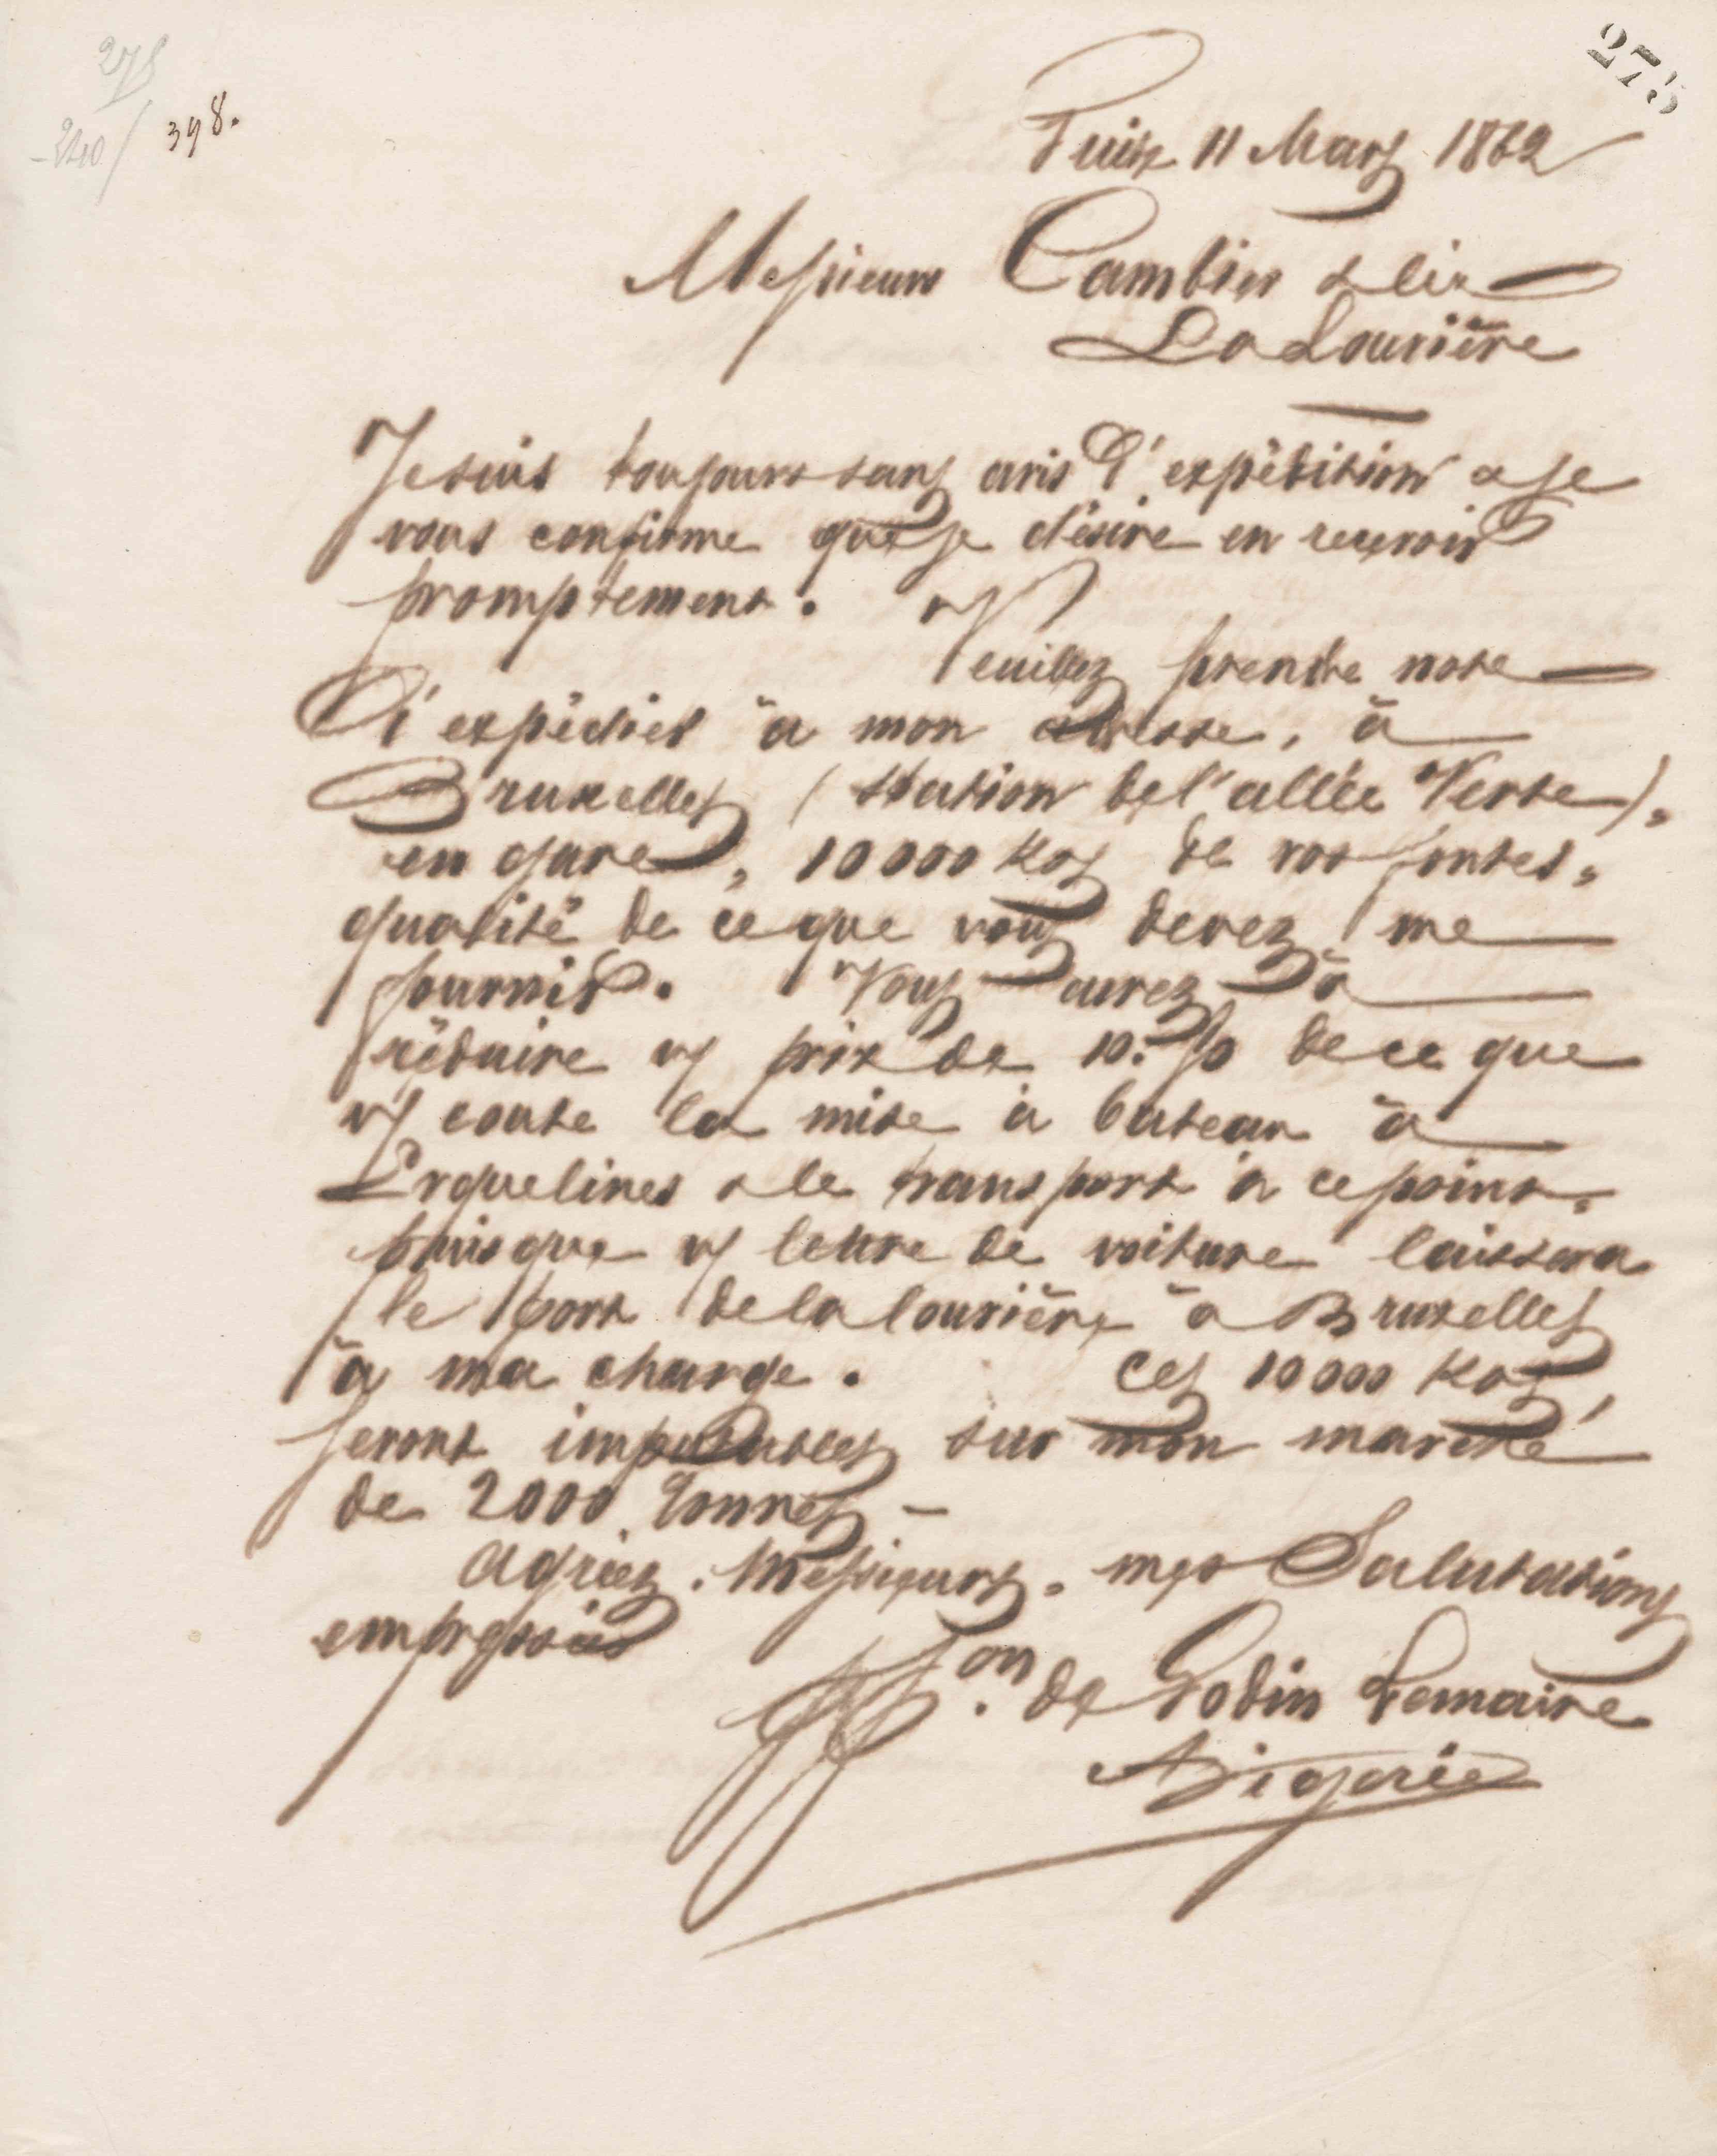 275
275
240/ 398.
Guise 11 Mars 1862
Messieurs Cambier & Cie
La Louvière
Je suis toujours sans avis d'expédition & je
vous confirme que je désire en recevoir
promptement.
Veuillez prendre note
d'expédier à mon adresse, à
Bruxelles (station de l'allée Verte),
en gare, 10000 Kos de vos fontes,
qualité de ce que vous devez me
fournir. Vous aurez à
réduire vs prix de 10. % de ce que
vs coute la mise à bateau à
Erquelines & le transport à ce point,
puisque vs lettre de voiture laissera
le port de la louvière à Bruxelles
à ma charge. Ces 10000 Kos,
seront imputables sur mon marché
de 2000 Tonnes –
Agréez, Messieurs, mes Salutations
empressées
Pon. de Godin Lemaire